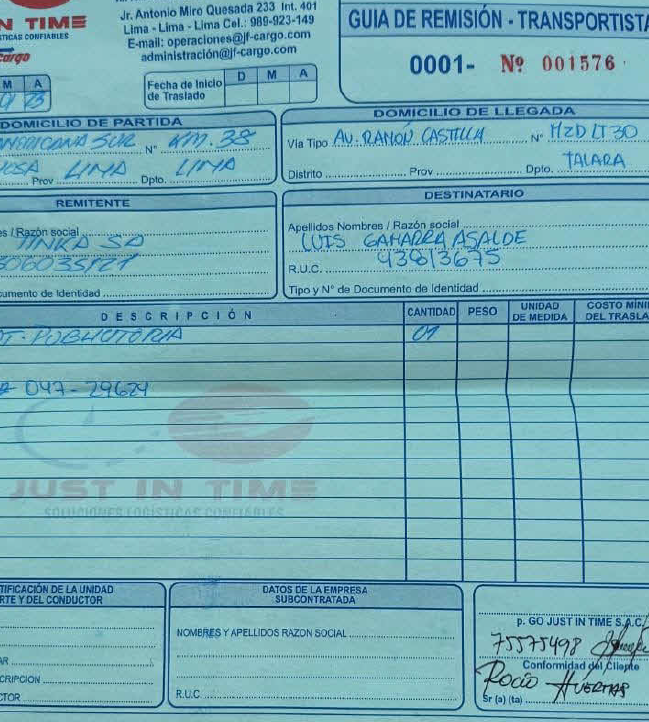 Jr. Antonio Miro Quesada 233 Int. 401
Lima - Lima - Lima Cel.: 989-923-149
E-mail: operaciones@jf-cargo.com
administración@jf-cargo.com
N TIME
TICAS CONFIABLES
Cargo
GUIA DE REMISIÓN - TRANSPORTISTA
0001- Nº 001576
M A
Fecha de Inicio
de Traslado
D M A
DOMICILIO DE PARTIDA
SUR Nº KM. 38
Prov LIMA Dpto. LIMA
DOMICILIO DE LLEGADA
Vía Tipo AV. RAMÓN CASTILLA Nº MZD LT30
Distrito Prov Dpto. TALARA
REMITENTE
es / Razón social
cumento de Identidad
DESTINATARIO
Apellidos Nombres / Razón social
LUIS GAMARRA ASALDE
R.U.C. 43813675
Tipo y N° de Documento de Identidad
DESCRIPCIÓN CANTIDAD PESO UNIDAD DE MEDIDA COSTO MÍNI DEL TRASLA
01
047-29629
JUST IN TIME
SOLUCIONES LOGÍSTICAS CONFIABLES
TIFICACIÓN DE LA UNIDAD
RTE Y DEL CONDUCTOR
AR
CRIPCION
CTOR
DATOS DE LA EMPRESA
SUBCONTRATADA
NOMBRES Y APELLIDOS RAZON SOCIAL
R.U.C
p. GO JUST IN TIME S.A.C.
75575498
Conformidad del Cliente
ROCÍO HUERTAS
Sr (a) (ta)